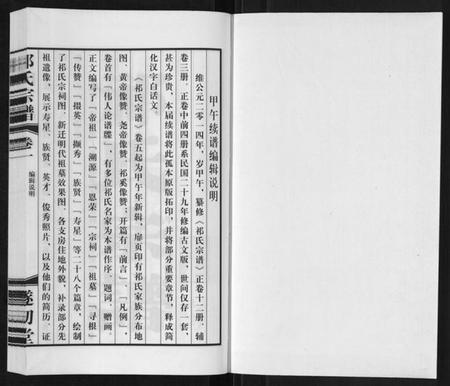 甲午续谱编辑说明
维公元二零一四年，岁甲午，纂修《祁氏宗谱》正卷十二册，辅
卷三册。正卷中前四册系民国二十九年修编古文版，世间仅存一套，
甚为珍贵，本届续谱将此孤本原版拓印，并将部分重要章节，释成简
化汉字白话文。
《祁氏宗谱》卷五起为甲午年新辑，扉页印有祁氏家族分布地
图、黄帝像赞、尧帝像赞、祁奚像赞。开篇有「前言」、「凡例」，
卷首有「伟人论谱牒」，有多位祁氏名家为本谱作序、题词、赠画。
正文编写了「帝祖」「溯源」「恩荣」「宗祠」「祖墓」「寻根」
「传赞」「掇英」「撷秀」「族贤」「寿星」等二十八个篇章，绘制
了祁氏宗祠图、新迁明代祖墓效果图、各支房住地外貌，补录部分先
祖遗像，展示寿星、族贤、英才、俊秀照片，以及他们的简历、证
祁氏宗谱
卷一
编辑说明
遂初堂